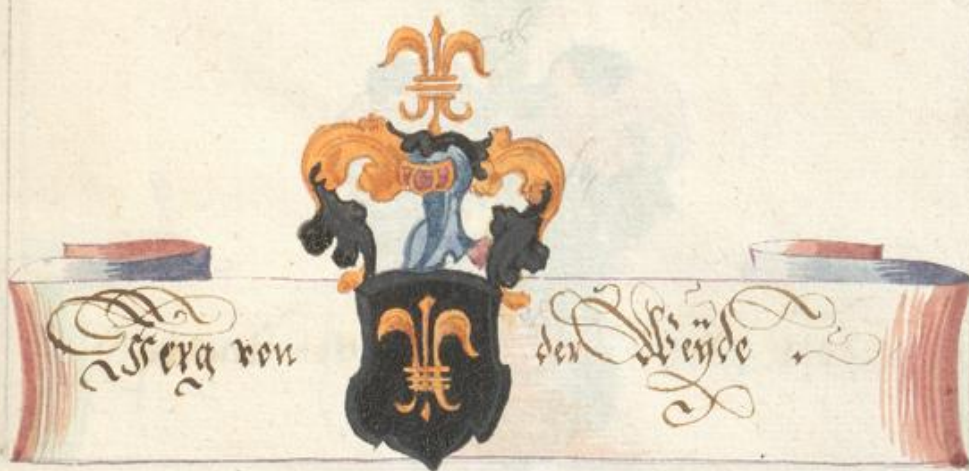 Jerg von der Weyde